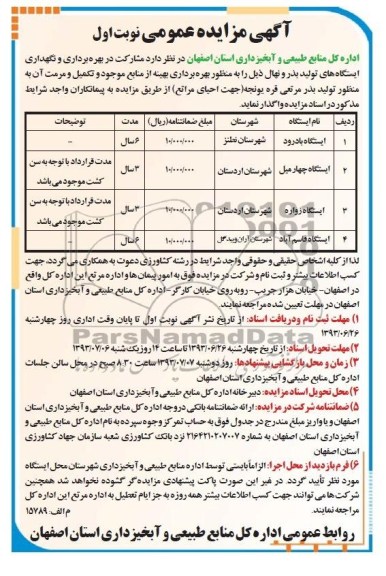 آگهی مزایده عمومی نوبت اول
اداره کل منابع طبیعی و آبخیزداری استان اصفهان در نظر دارد مشارکت در بهره‌برداری و نگهداری
ایستگاه‌های تولید بذر و نهال ذیل را به منظور بهره‌برداری بهینه از منابع موجود و تکمیل و مرمت آن به
منظور تولید بذر مرتعی قره یونجه(جهت احیای مراتع) از طریق مزایده به پیمانکاران واجد شرایط
مذکور در اسناد مزایده واگذار نماید.
ردیف نام ایستگاه شهرستان مبلغ ضمانتنامه(ریال) مدت توضیحات
۱ ایستگاه بادرود شهرستان نطنز ۱۰/۰۰۰/۰۰۰ ۶ سال -
۲ ایستگاه چهار میل شهرستان اردستان ۱۰/۰۰۰/۰۰۰ ۳ سال مدت قرارداد با توجه به سن
کشت موجود می‌باشد
۳ ایستگاه زواره شهرستان اردستان ۱۰/۰۰۰/۰۰۰ ۳ سال مدت قرارداد با توجه به سن
کشت موجود می‌باشد
۴ ایستگاه قاسم آباد شهرستان آران و بیدگل ۱۰/۰۰۰/۰۰۰ ۶ سال -
لذا از کلیه اشخاص حقیقی و حقوقی واجد شرایط در رشته کشاورزی دعوت به همکاری می‌گردد. جهت
کسب اطلاعات بیشتر و ثبت نام و شرکت در مزایده فوق به امور پیمان‌ها و اداره مرتع این اداره کل واقع
در اصفهان - خیابان هزار جریب - روبه‌روی خیابان کارگر - اداره کل منابع طبیعی و آبخیزداری استان
اصفهان در مهلت تعیین شده مراجعه نمایند.
۱) مهلت ثبت نام و دریافت اسناد: از تاریخ نشر آگهی نوبت اول تا پایان وقت اداری روز چهارشنبه
۱۳۹۳/۰۶/۲۶
۲) مهلت تحویل اسناد: از تاریخ چهارشنبه ۱۳۹۳/۰۶/۲۶ تا ساعت ۱۴ روز یک شنبه ۱۳۹۳/۰۷/۰۶
۳) زمان و محل بازگشایی پیشنهادها: روز دوشنبه ۱۳۹۳/۰۷/۰۷ ساعت ۸:۳۰ صبح در محل سالن جلسات
اداره کل منابع طبیعی و آبخیزداری استان اصفهان
۴) محل تحویل اسناد مزایده: دبیرخانه اداره کل منابع طبیعی و آبخیزداری استان اصفهان
۵) ضمانتنامه شرکت در مزایده: ارائه ضمانتنامه بانکی در وجه اداره کل منابع طبیعی و آبخیزداری استان
اصفهان و یا واریز مبلغ مندرج در جدول فوق به حساب تمرکز وجوه سپرده به نام اداره کل منابع طبیعی و
آبخیزداری استان اصفهان به شماره ۲۱۶۴۲۱۰۲۰۷۰۰۷ نزد بانک کشاورزی شعبه سازمان جهاد کشاورزی
استان اصفهان
۶) فرم بازدید از محل اجرا: الزاما بایستی توسط اداره منابع طبیعی و آبخیزداری شهرستان محل ایستگاه
مورد نظر تأیید گردد. در غیر این صورت پاکت پیشنهادی مزایده‌گر گشوده نخواهد شد همچنین
شرکت‌ها می‌توانند جهت کسب اطلاعات بیشتر همه روزه به جز ایام تعطیل به اداره مرتع این اداره کل
مراجعه نمایند.
م الف: ۱۵۷۸۹
روابط عمومی اداره کل منابع طبیعی و آبخیزداری استان اصفهان
ParsNamadData